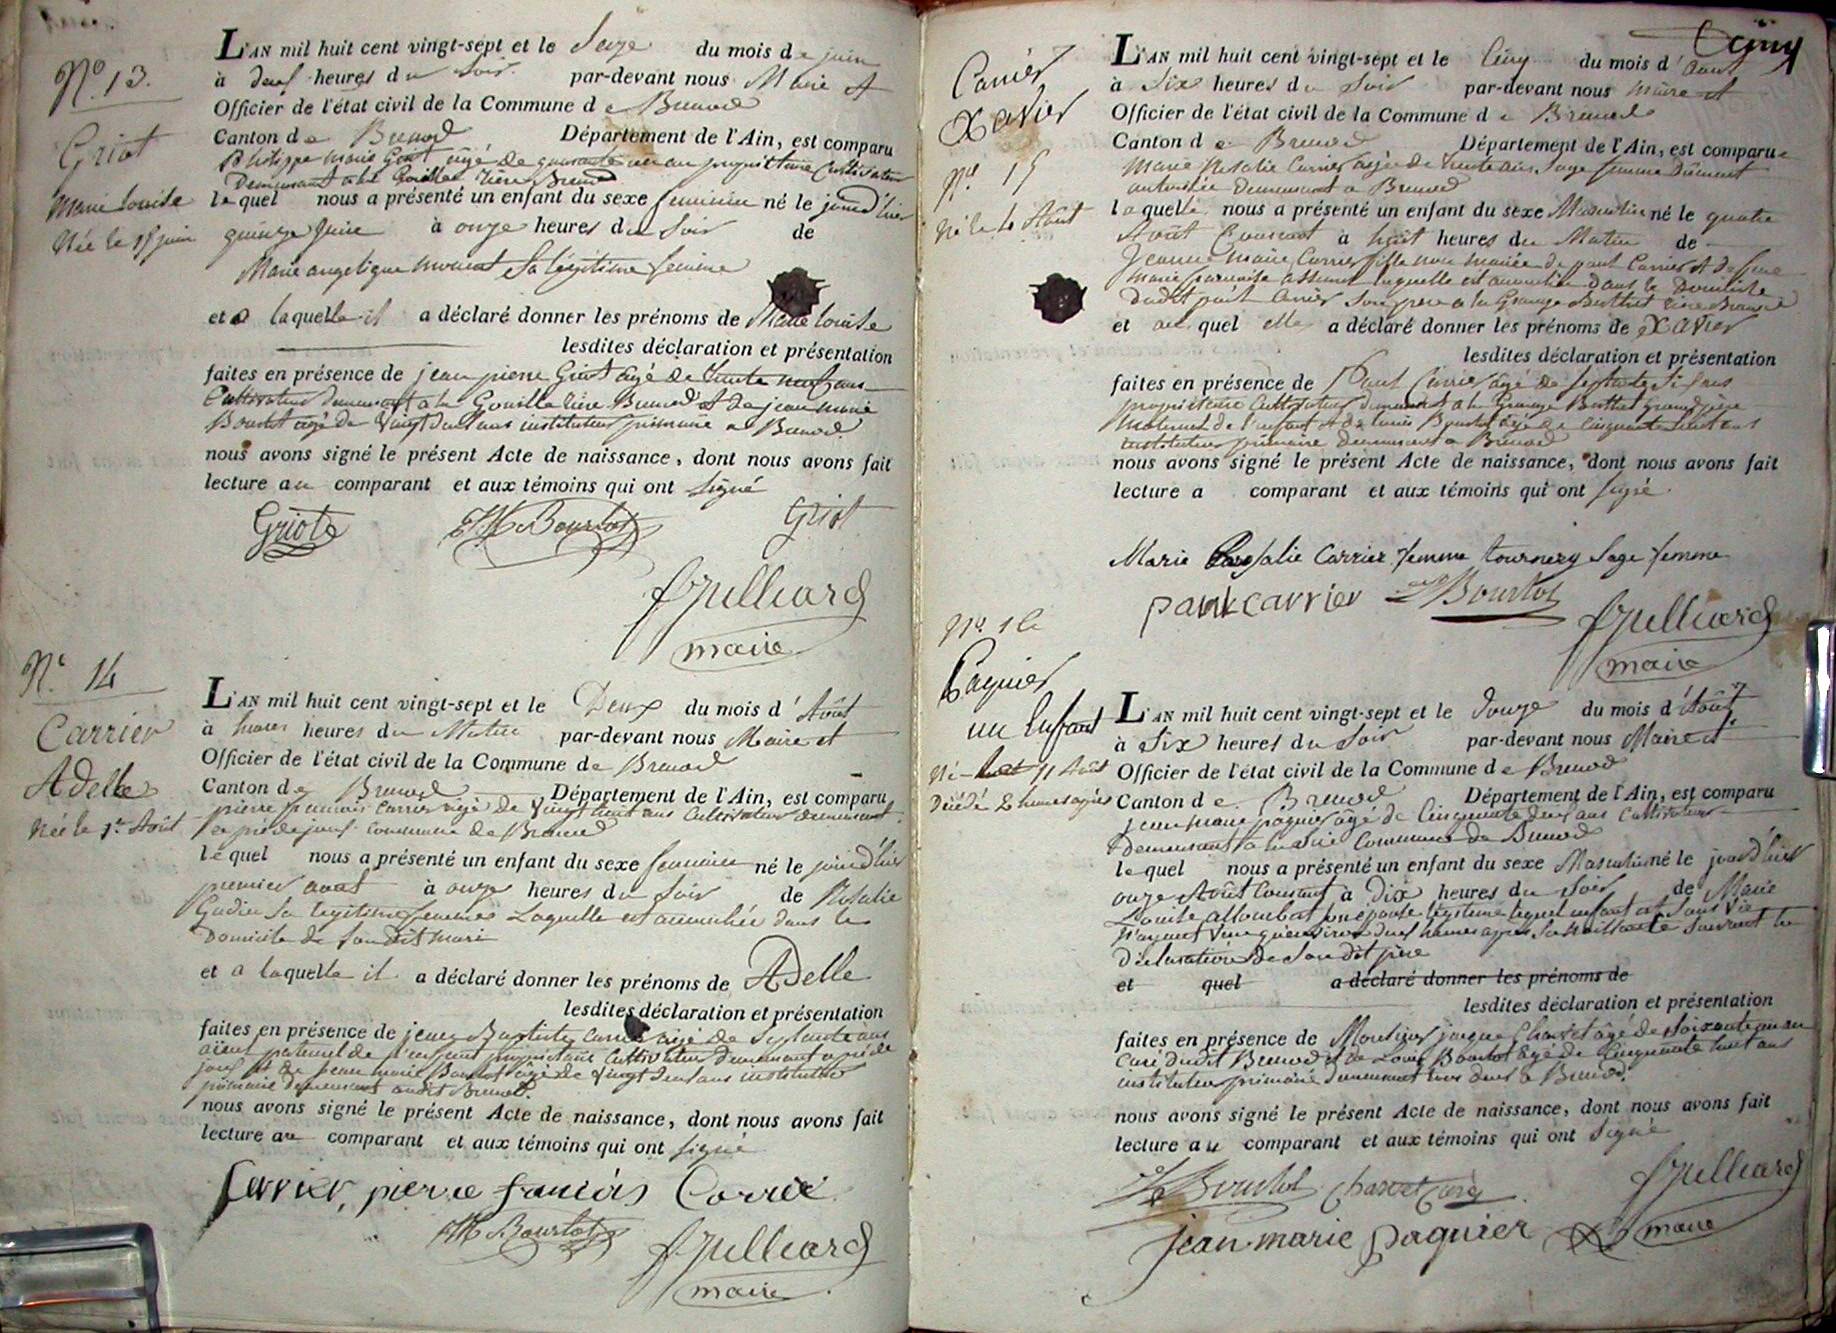 N.o 13.
Griot
Marie Louise
Née le 15 juin
L'AN mil huit cent vingt-sept et le Seize du mois de juin
à deux heures du Soir par-devant nous Maire et
Officier de l'état civil de la Commune de Brenod
Canton de Brenod Département de l'Ain, est comparu
Philippe Marie Griot âgé de quarante un an propriétaire Cultivateur
Demeurant à la Gouille rière Brenod
lequel nous a présenté un enfant du sexe féminin né le jour d'hier
quinze juin à onze heures du Soir de
Marie angelique Sa légitime femme
et à laquelle il a déclaré donner les prénoms de Marie Louise
lesdites déclaration et présentation
faites en présence de jean pierre Griot âgé de trente neuf ans
Cultivateur demeurant à la Gouille rière Brenod et de jean marie
Bourlot âgé de vingt deux ans instituteur primaire à Brenod.
nous avons signé le présent Acte de naissance, dont nous avons fait
lecture au comparant et aux témoins qui ont signé
Griot JM Bourlot Griot
Julliard
maire
N.o 14
Carrier
Adelle
Née le 1er Août
L'AN mil huit cent vingt-sept et le Deux du mois d'Août
à heures du Matin par-devant nous Maire et
Officier de l'état civil de la Commune de Brenod
Canton de Brenod Département de l'Ain, est comparu
pierre francois Carrier âgé de vingt huit ans Cultivateur demeurant
commune de Brenod
lequel nous a présenté un enfant du sexe féminin né le jour d'hier
premier août à onze heures du Soir de Rosalie
Sa légitime femme Laquelle est accouchée dans le
Domicile de Son dit mari
et a laquelle il a déclaré donner les prénoms de Adelle
lesdites déclaration et présentation
faites en présence de jean Baptiste Carrier âgé de Septante ans
aïeul paternel de l'enfant propriétaire Cultivateur demeurant
et de jean marie Bourlot âgé de vingt deux ans instituteur
primaire demeurant audit Brenod.
nous avons signé le présent Acte de naissance, dont nous avons fait
lecture au comparant et aux témoins qui ont signé
Carrier, pierre francois Carrier
JM Bourlot
Julliard
maire
Cinq
Carrier
Xavier
N.o 15
Né le 4 Août
L'AN mil huit cent vingt-sept et le Cinq du mois d'Août
à Six heures du Soir par-devant nous maire et
Officier de l'état civil de la Commune de Brenod
Canton de Brenod Département de l'Ain, est comparue
Marie Rosalie Carrier âgée de trente ans, Sage femme Dûment
autorisée demeurant a Brenod
laquelle nous a présenté un enfant du sexe Masculin né le quatre
Août Courant à huit heures du Matin de
Jeanne marie Carrier fille non mariée de paul Carrier et de
marie laquelle est accouchée dans le Domicile
dudit paul Carrier Son père a la Grange rière Brenod
et auquel elle a déclaré donner les prénoms de Xavier
lesdites déclaration et présentation
faites en présence de Paul Carrier âgé de Septante Six ans
propriétaire Cultivateur demeurant a la Grange Grand père
Maternel de l'enfant et de Louis Bourlot âgé de Cinquante huit ans
instituteur primaire demeurant a Brenod
nous avons signé le présent Acte de naissance, dont nous avons fait
lecture a comparant et aux témoins qui ont signé
Marie Rosalie Carrier femme tournery Sage femme
paul carrier Bourlot
Julliard
maire
N.o 16
Paquier
un Enfant
Né le 11 Août
Décédé 2 heures après
L'AN mil huit cent vingt-sept et le Douze du mois d'Août
à Six heures du Soir par-devant nous Maire et
Officier de l'état civil de la Commune de Brenod
Canton de Brenod Département de l'Ain, est comparu
jean marie paquier âgé de Cinquante deux ans Cultivateur
Demeurant Commune de Brenod
lequel nous a présenté un enfant du sexe Masculin né le jour d'hier
onze Août Courant à Dix heures du Soir de Marie
Louise allombert son épouse légitime lequel enfant est Sans Vie
n'ayant Vécu qu'environ deux heures après Sa naissance Suivant la
déclaration de Son dit père
et quel a déclaré donner les prénoms de
lesdites déclaration et présentation
faites en présence de Monsieur jacque Charvet âgé de soixante un an
Curé dudit Brenod et de Louis Bourlot âgé de Cinquante huit ans
instituteur primaire demeurant tous deux a Brenod.
nous avons signé le présent Acte de naissance, dont nous avons fait
lecture au comparant et aux témoins qui ont Signé
Bourlot Charvet Curé Julliard
jean marie paquier maire